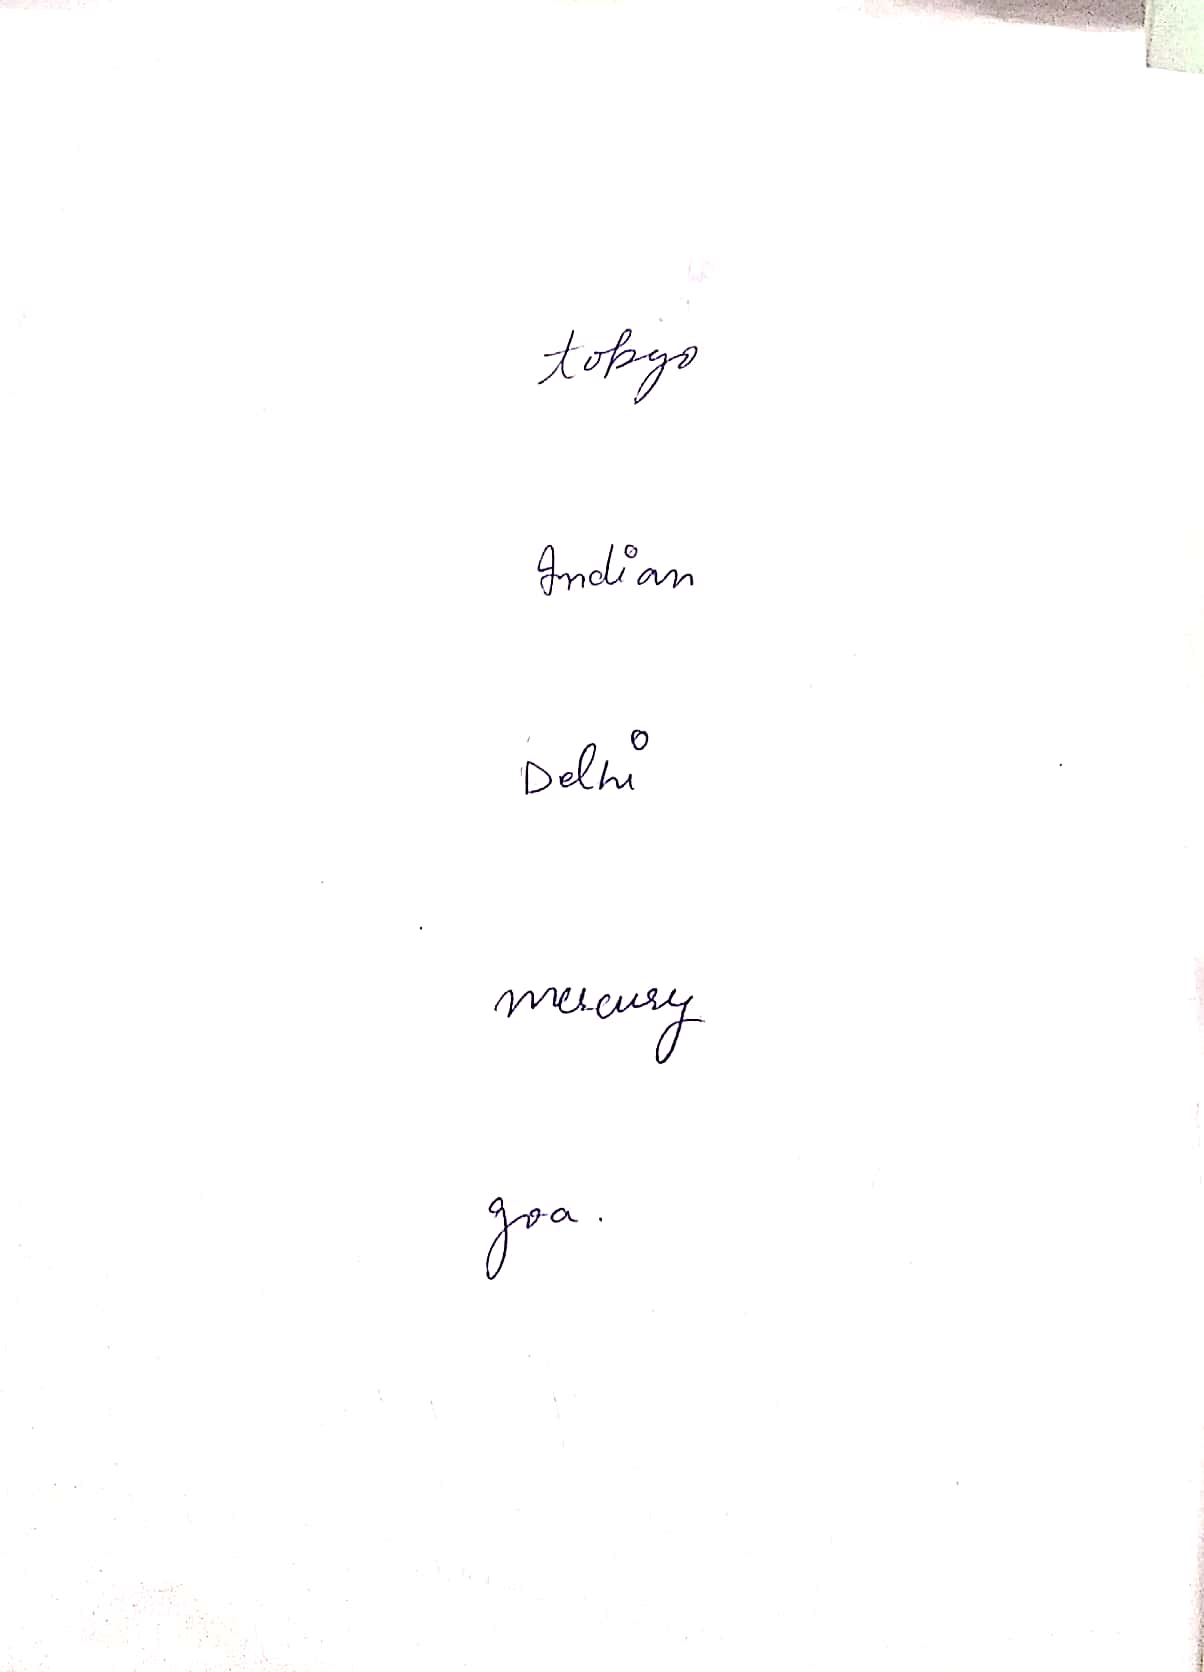 tokyo
Indian
Delhi
mercury
goa.